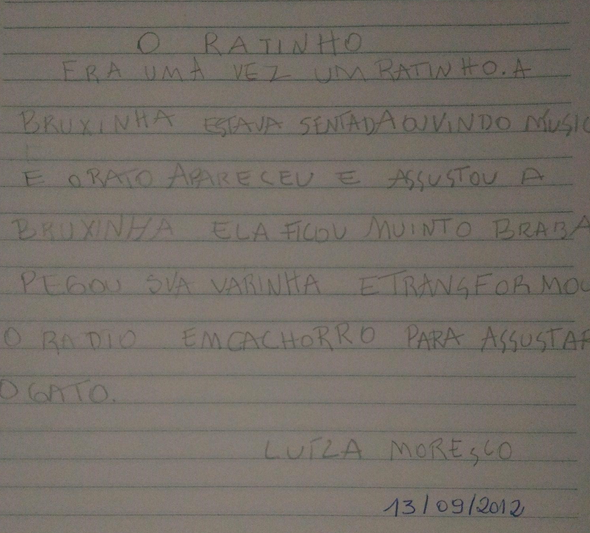 O RATINHO
ERA UMA VEZ UM RATINHO. A
BRUXINHA ESTAVA SENTADA OUVINDO MÚSIC
E O RATO APARECEU E ASSUSTOU A
BRUXINHA ELA FICOU MUINTO BRABA
PEGOU SUA VARINHA E TRANSFORMOU
O RADIO EM CACHORRO PARA ASSUSTAR
O GATO.
LUÍZA MORESCO
13/09/2012